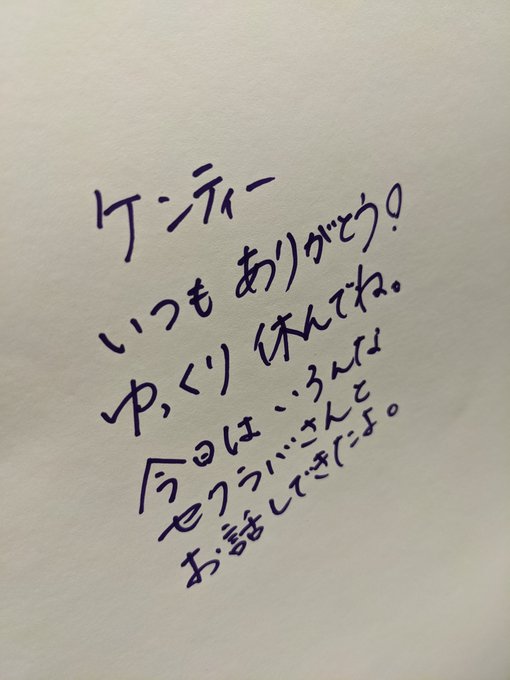 ケンティー
いつもありがとう!
ゆっくり休んでね。
今日はいろんな
セクラバさんと
お話しできたよ。